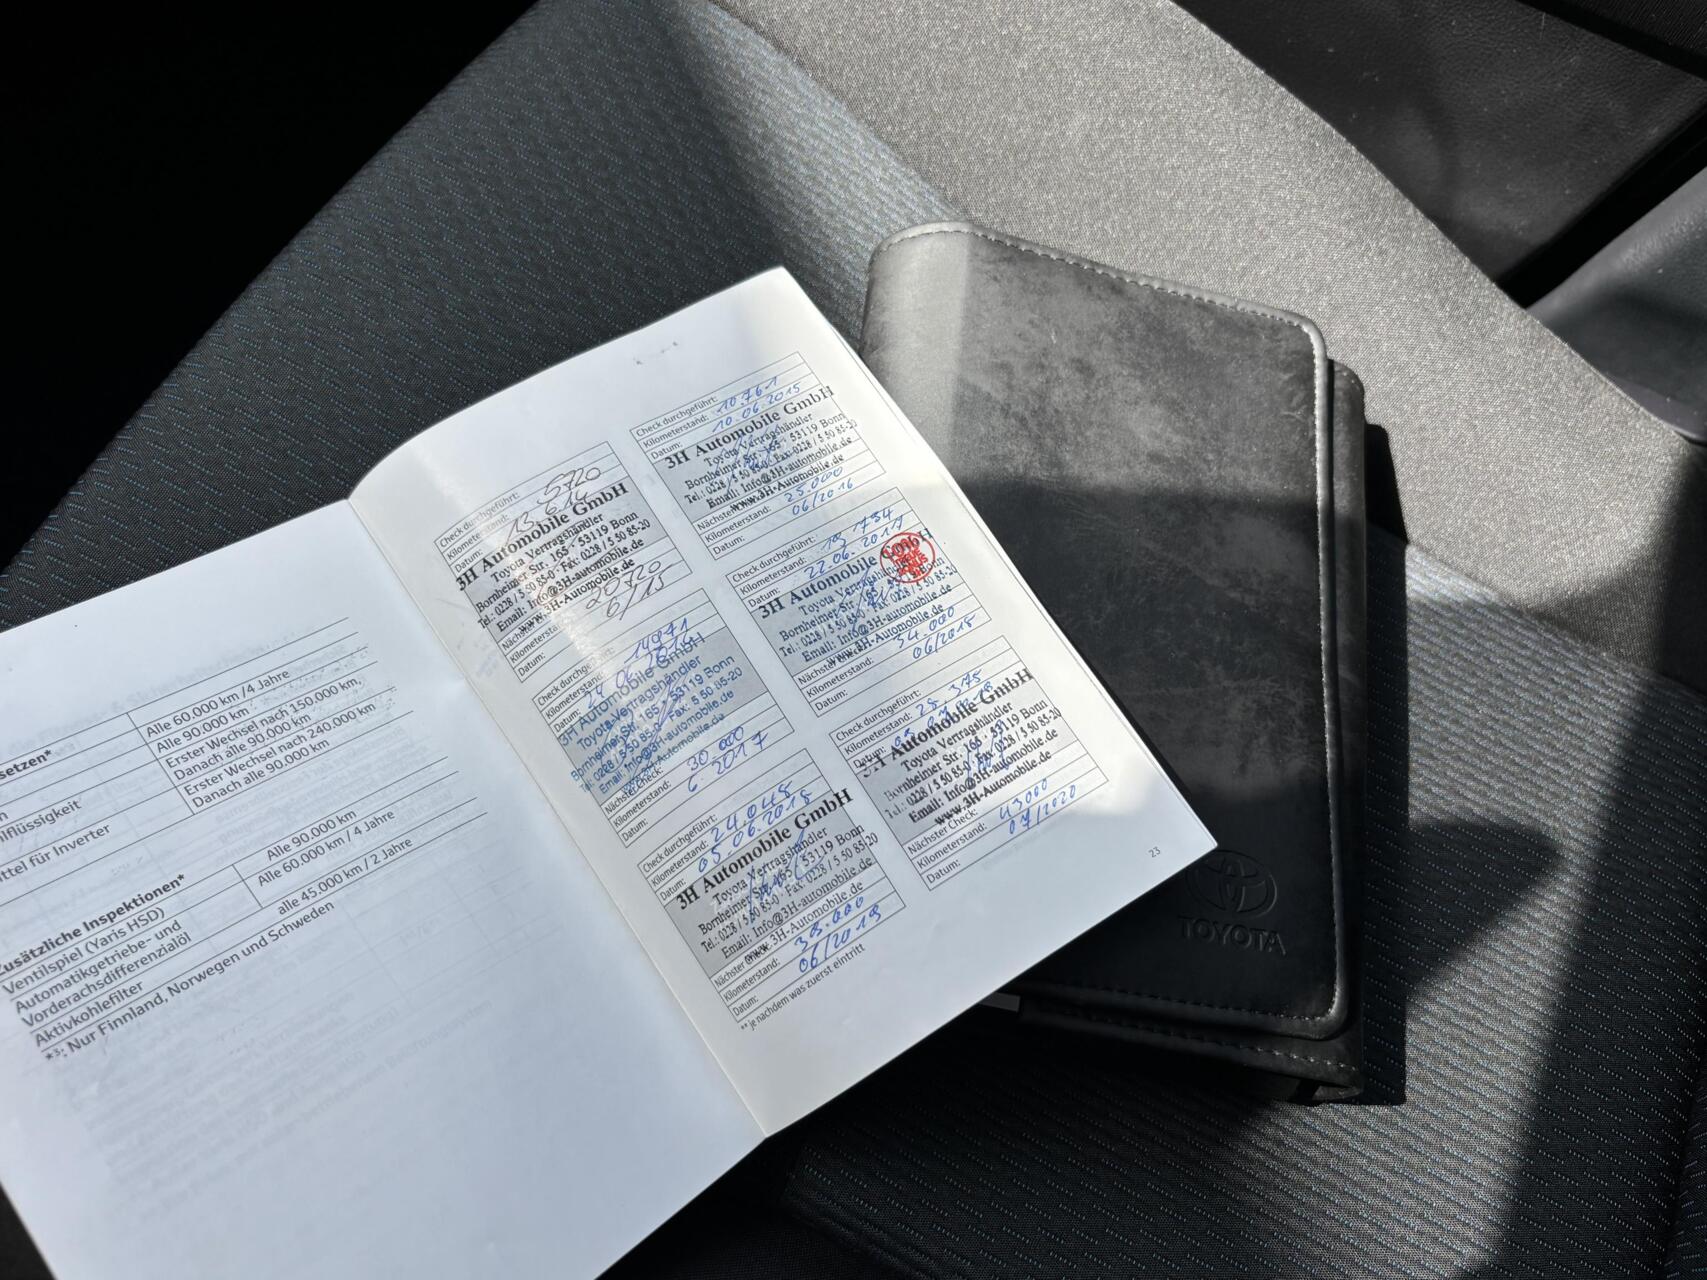 setzen*
Alle 60.000 km /4 Jahre
Alle 90.000 km
Erster Wechsel nach 150.000 km,
Danach alle 90.000 km
Erster Wechsel nach 240.000 km
Danach alle 90.000 km
lflüssigkeit
ttel für Inverter
Zusätzliche Inspektionen*
Ventilspiel (Yaris HSD)
Alle 90.000 km
Automatikgetriebe- und
Vorderachsdifferenzialöl
Alle 60.000 km / 4 Jahre
Aktivkohlefilter
alle 45.000 km / 2 Jahre
*³: Nur Finnland, Norwegen und Schweden
Check durchgeführt:
Kilometerstand: 5720
Datum: 13.6.14
3H Automobile GmbH
Toyota Vertragshändler
Bornheimer Str. 165 · 53119 Bonn
Tel.: 0228 / 5 50 85-0 · Fax: 0228 / 5 50 85-20
Email: Info@3H-automobile.de
www.3H-Automobile.de
20720
Datum: 6/15
Check durchgeführt:
Kilometerstand: 10.761
Datum: 10.06.2015
3H Automobile GmbH
Toyota Vertragshändler
Bornheimer Str. 165 · 53119 Bonn
Tel.: 0228 / 5 50 85-0 · Fax: 0228 / 5 50 85-20
Email: Info@3H-automobile.de
www.3H-Automobile.de
Kilometerstand: 25.000
Datum: 06/2016
Check durchgeführt:
Kilometerstand: 14971
Datum:
3H Automobile GmbH
Toyota-Vertragshändler
Bornheimer Str. 165 · 53119 Bonn
Tel.: 0228 / 5 50 85-0 Fax: 5 50 85-20
Email: Info@3H-Automobile.de
www.3H-Automobile.de
Nächster Check:
Kilometerstand: 30 000
Datum: 6. 2017
Check durchgeführt:
Kilometerstand:
Datum: 22.06.2017
3H Automobile GmbH
Toyota Vertragshändler
Bornheimer Str. 165 · 53119 Bonn
Tel.: 0228 / 5 50 85-0 · Fax: 0228 / 5 50 85-20
Email: Info@3H-automobile.de
www.3H-Automobile.de
Kilometerstand: 34.000
Datum: 06/2018
Check durchgeführt:
Kilometerstand: 24.045
Datum: 05.06.2018
3H Automobile GmbH
Toyota Vertragshändler
Bornheimer Str. 165 · 53119 Bonn
Tel.: 0228 / 5 50 85-0 · Fax: 0228 / 5 50 85-20
Email: Info@3H-automobile.de
www.3H-Automobile.de
Kilometerstand:
Datum: 06/2019
Check durchgeführt:
Kilometerstand: 25.375
Datum:
3H Automobile GmbH
Toyota Vertragshändler
Bornheimer Str. 165 · 53119 Bonn
Tel.: 0228 / 5 50 85-0 · Fax: 0228 / 5 50 85-20
Email: Info@3H-automobile.de
www.3H-Automobile.de
Nächster Check:
Kilometerstand: 43000
Datum: 07/2020
** je nachdem was zuerst eintritt
23
TOYOTA